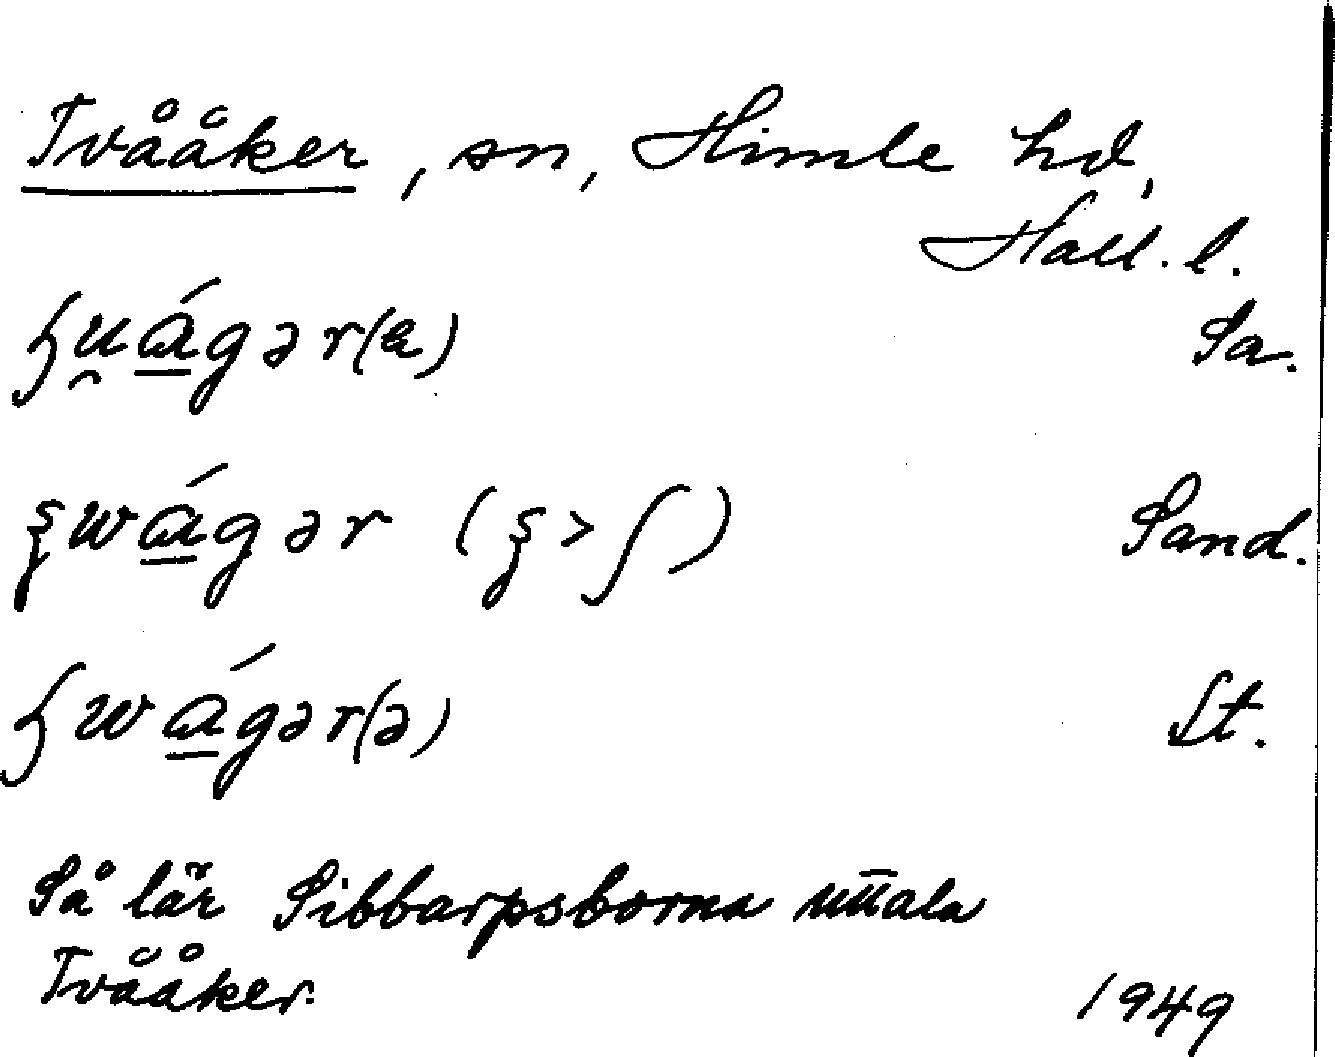 Tvååker, sn, Himle hd,
Hall. l.
ʄu̯ágər(ə) Sa.
wágər ( > ʃ) Sand.
ʄwágər(ə) St.
Så lär Sibbarpsborna uttala
Tvååker.
1949